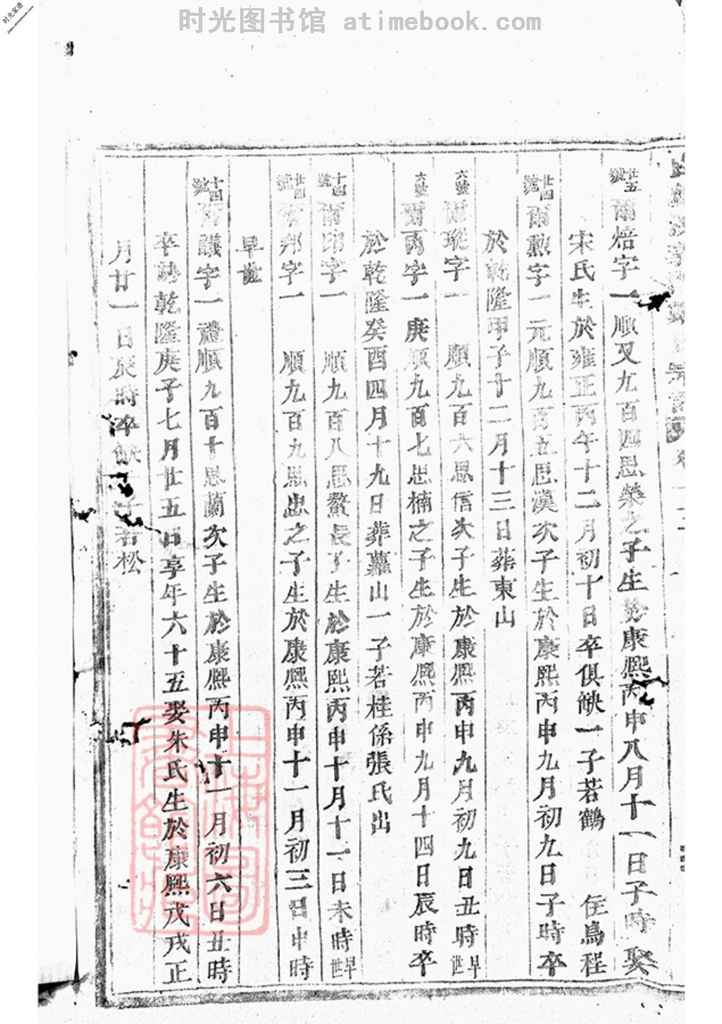 时光图书馆 atimebook.com
廿五號 爾焙字一 順又九百四思榮之子生於康熙丙申八月十一日子時娶
宋氏生於雍正丙午十二月初十日卒俱缺一子若鶴 住烏程
廿四號 爾勲字一元順九百五思漢次子生於康熙丙申九月初九日子時卒
於乾隆甲子十二月十三日葬東山
六號 爾瑽字一 順九百六思信次子生於康熙丙申九月初九日丑時早世
六號 爾丙字一庚順九百七思楠之子生於康熙丙申九月十四日辰時卒
於乾隆癸酉四月十九日葬 山一子若桂係張氏出
十四號 爾印字一 順九百八思 長子生於康熙丙申十月十一日未時早世
廿四號 邦字一 順九百九思忠之子生於康熙丙申十一月初三日申時
早世
十四號 爾議字一禮順九百十思蘭次子生於康熙丙申十一月初六日丑時
卒於乾隆庚子七月廿五日享年六十五娶朱氏生於康熙戊戌正
月廿一日辰時卒缺 若松